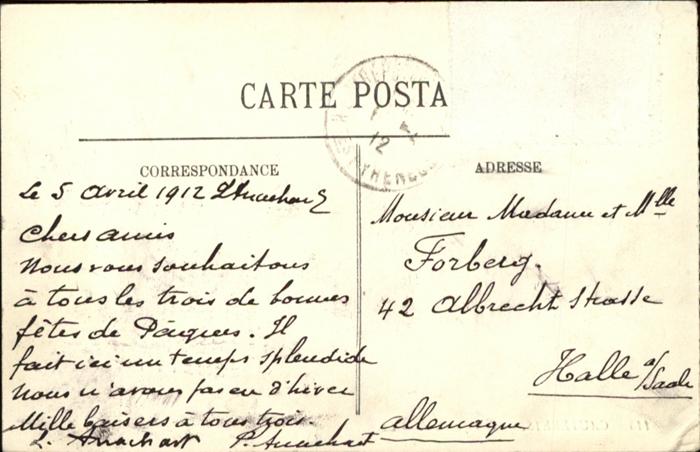 CARTE POSTA
CORRESPONDANCE
Le 5 Avril 1912
Chers amis
Nous vous souhaitons
à tous les trois de bonnes
fêtes de Pâques. Il
fait ici un temps splendide
nous n'avons pas eu d'hiver
Mille baisers à tous trois.
L. Anachart P. Anachart
ADRESSE
Monsieur Madame et Mlle
Forberg.
42 Albrecht Strasse
Halle a/Saale
Allemagne
12